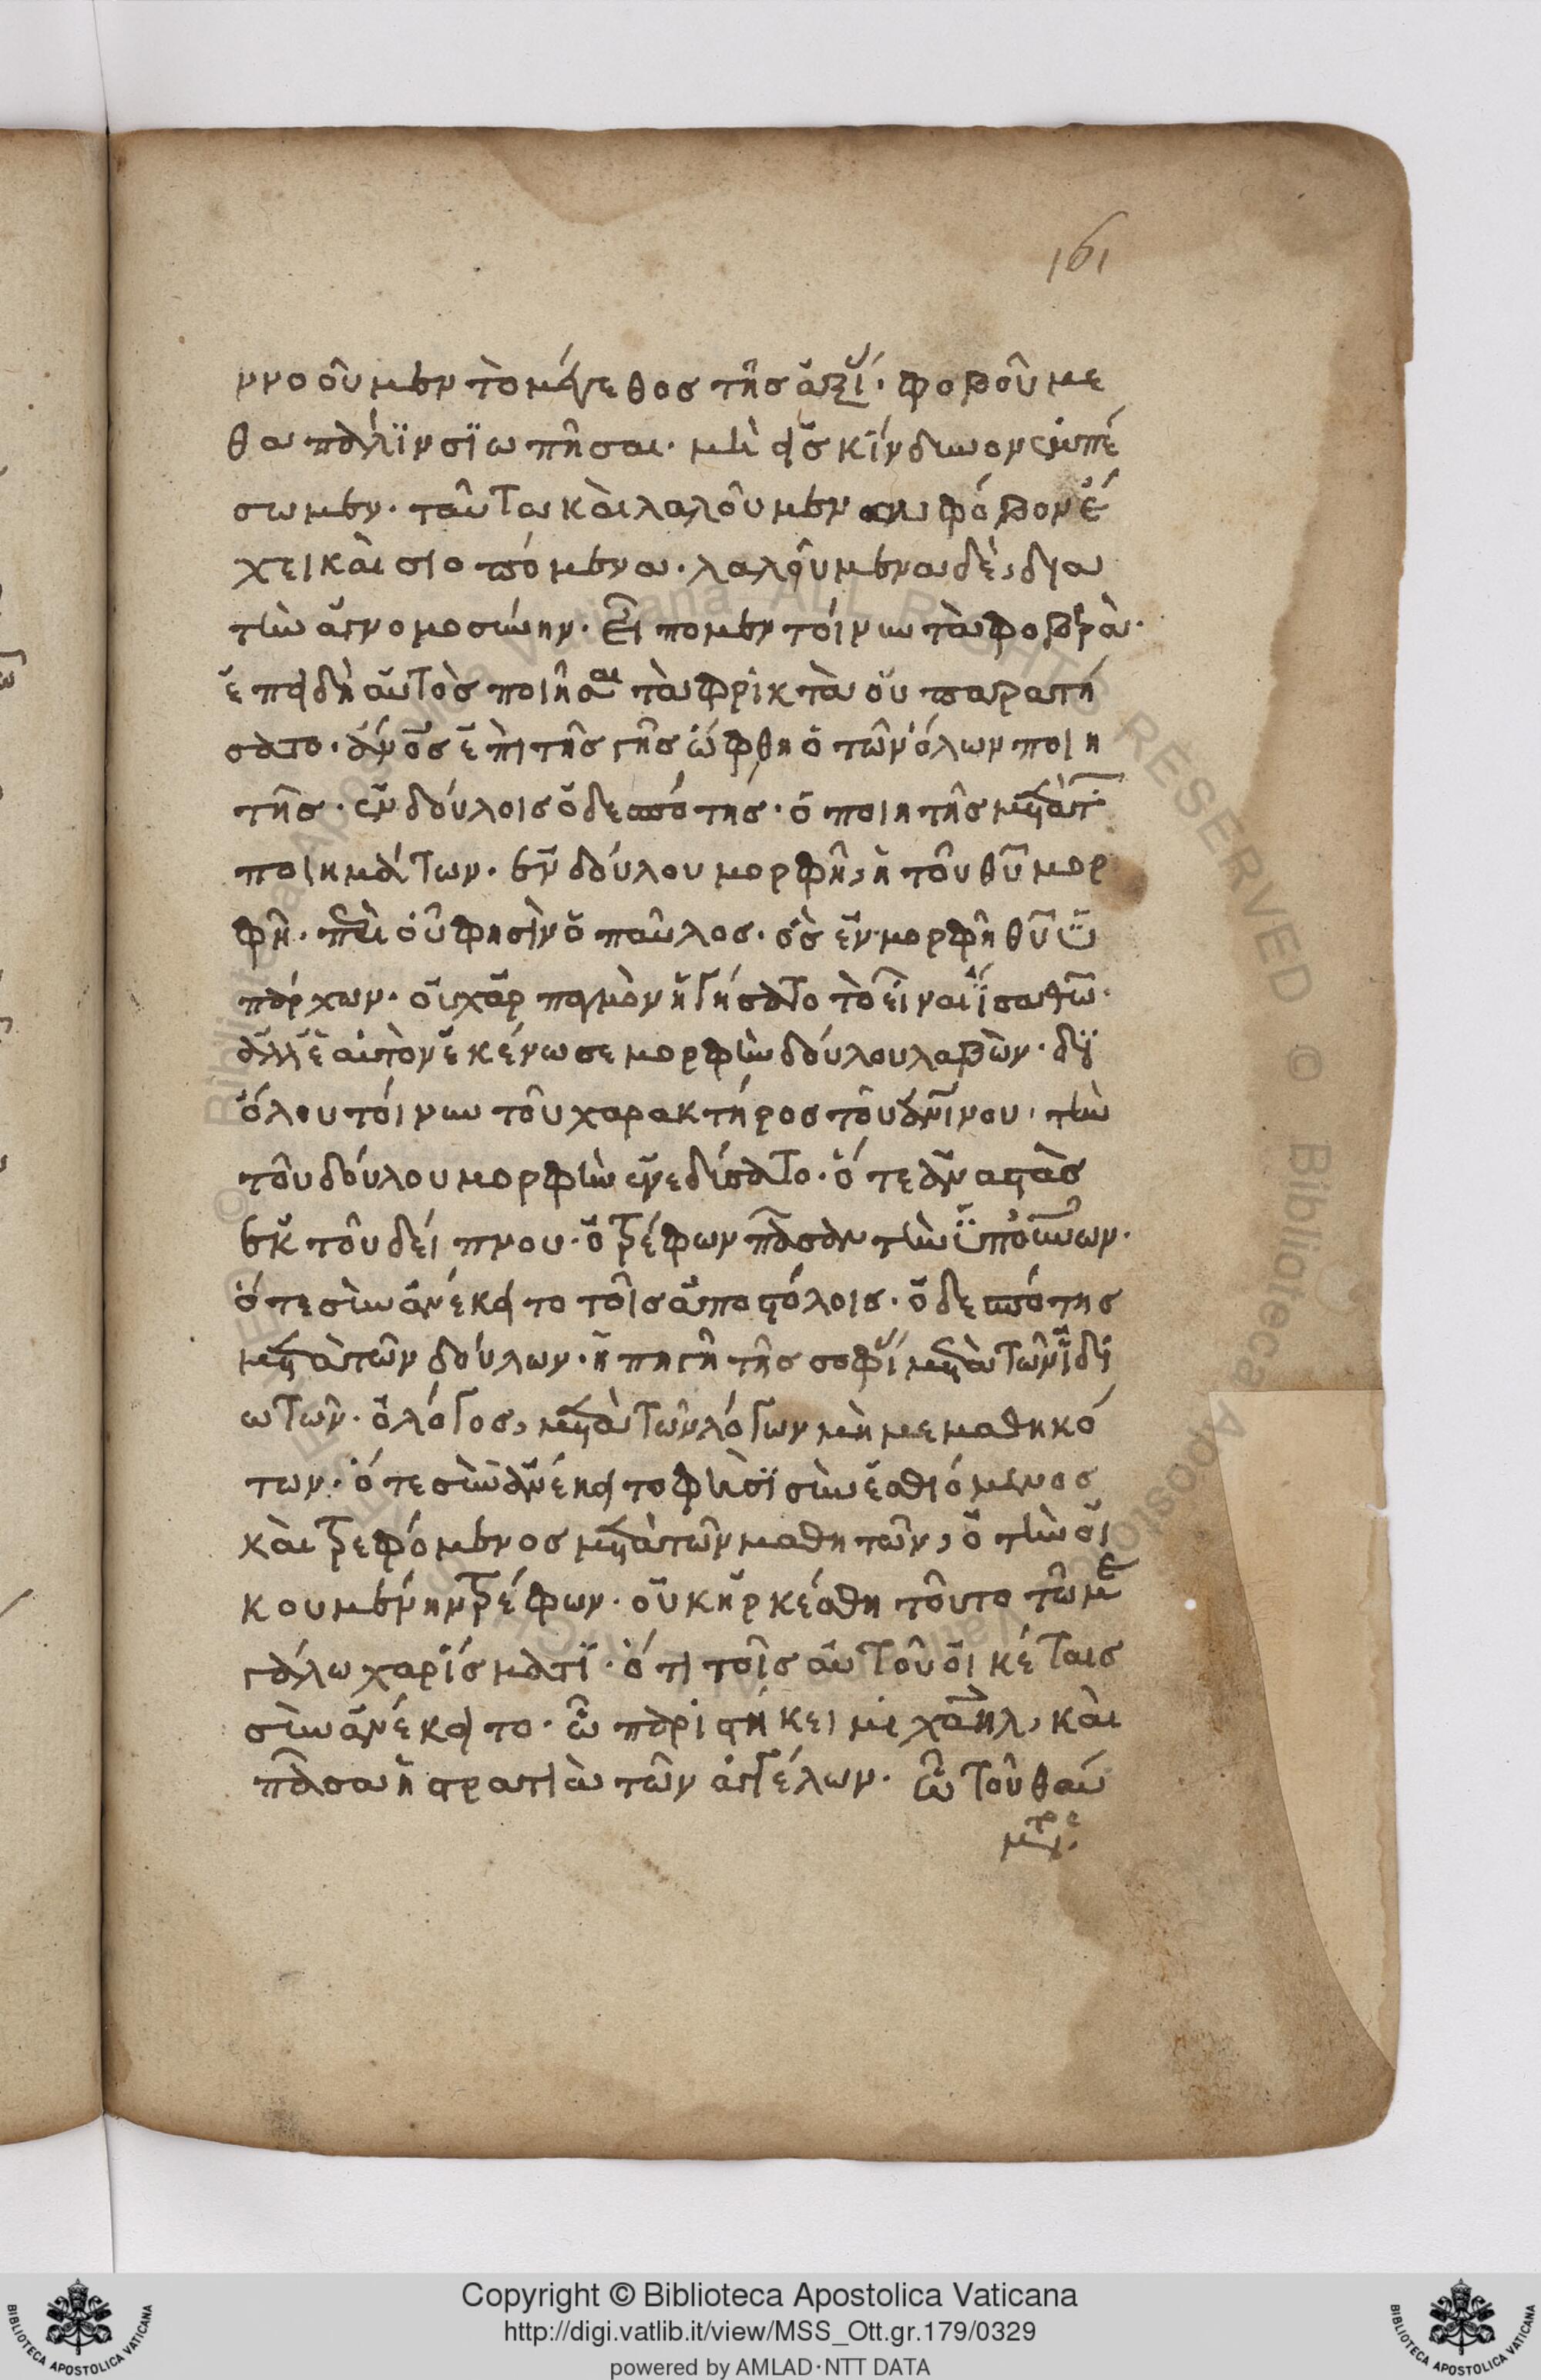 161
ννοοῦμεν τὸ μέγεθος τῆς ἀξί. φοβούμε
θα πάλϊν σϊωπῆσαι. μὴ εἰς κΐνδυνον ἐμπέ
σωμεν. ταῦτα καὶ λαλοῦμεν φόβον ἔ
χει καὶ σιοπόμενα. λαλοῦμενα δὲ, δια
τὴν ἀγνομοσύνην. εἴπομεν τοίνυν τὰ φοβρὰ.
ἐπειδὴ αὐτὸς ποιῆσαι τὰ φρικτὰ οὐ παρατή
σατο. ἀνος ἐπὶ τῆς γῆς ὤφθη ὁ τῶν ὅλων ποιη
τῆς. ἐν δούλοις ὁ δεσπότης. ὁ ποιητῆς μετὰ τ
ποιημάτων. ἐν δούλου μορφῆ, ἡ τοῦ θυ μορ
φῆ. περὶ οὗ φησὶν ὁ παῦλος. ὃς ἐν μορφῆ θυ ὑ
πάρχων. οὐχ ἁρπαγμὸν ἡγήσατο τὸ εἶναι ΐσα θω.
ἀλλ ἑαυτὸν ἐκένωσε μορφὴν δούλου λαβὼν. δϊ
ὅλου τοίνυν τοῦ χαρακτήρος τοῦ ἀνίνου, τὴν
τοῦ δούλου μορφὴν ἐνεδύσατο. ὅτε ἀναστὰς
ἐκ τοῦ δείπνου. ὁ τρέφων πᾶσαν τὴν ὑπ οὐνων.
ὅτε συνανέκειτο τοῖς ἀποστόλοις. ὁ δεσπότης
μετὰ τῶν δούλων. ἡ πηγὴ τῆς σοφί μετὰ τῶν ἰδι
ωτῶν. ὁ λόγος, μετὰ τῶν λόγων μὴ μεμαθηκό
των. ὅτε συνανέκειτο φησῒ συνεσθιόμενος
καὶ τρεφόμενος μετὰ τῶν μαθητῶν, ὁ τὴν οἰ
κουμένην τρέφων. οὐκ ἠρκέσθη τοῦτο τῶ με
γάλω χαρίσματϊ. ὅτι τοῖς αὐτοῦ οἰκέταις
συνανέκειτο. ὧ παριστήκει μιχαὴλ, καὶ
πᾶσα ἡ στρατιὰ τῶν ἀγγέλων. ὢ τοῦ θαύ
Copyright © Biblioteca Apostolica Vaticana
http://digi.vatlib.it/view/MSS_Ott.gr.179/0329
powered by AMLAD·NTT DATA
BIBLIOTECA APOSTOLICA VATICANA
BIBLIOTECA APOSTOLICA VATICANA